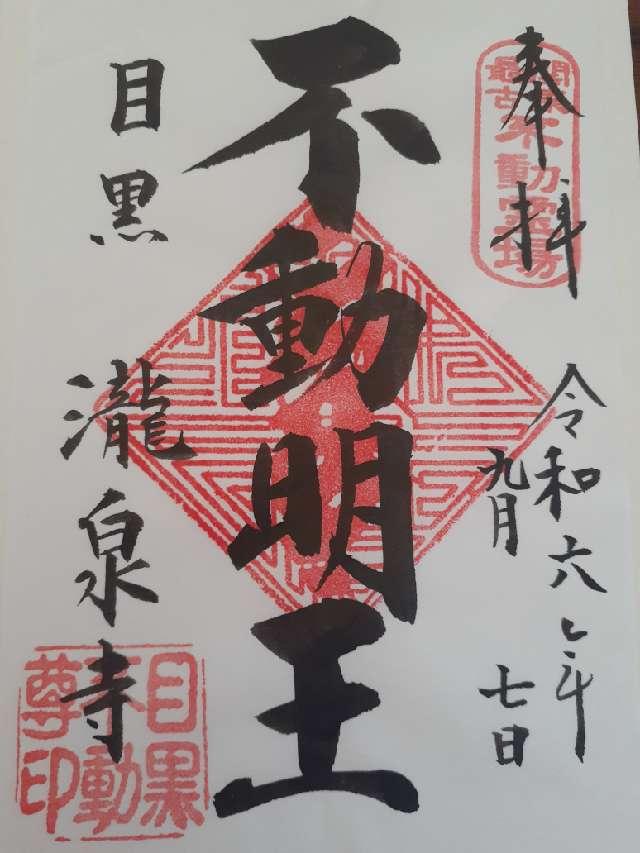 奉拝
関東最古不動霊場
令和六年
九月七日
不動明王
目黒
瀧泉寺
目黒不動尊印